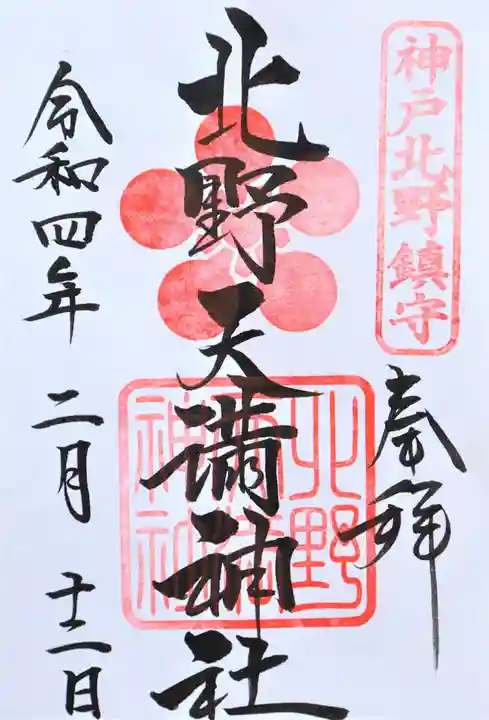 神戸北野鎮守
奉拝
北野天満神社
北野天満神社
令和四年 二月 十二日